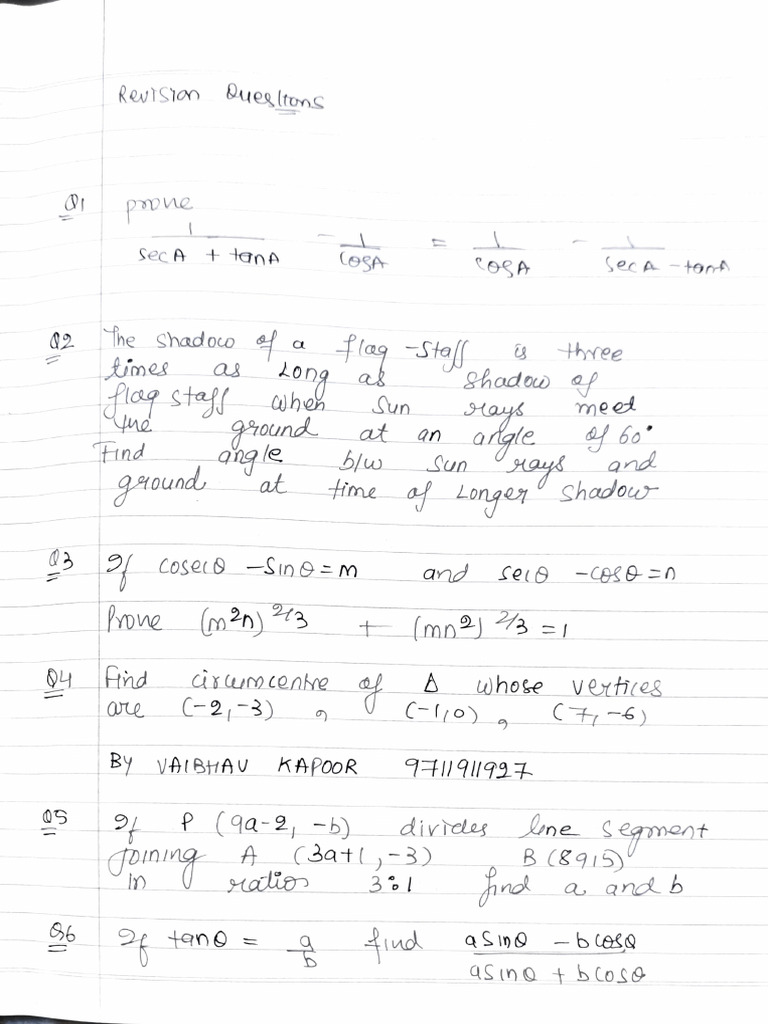 Revision Questions
Q1 prove
1/(secA + tanA) - 1/cosA = 1/cosA - 1/(secA - tanA)
Q2 The shadow of a flag-staff is three
times as Long as shadow of
flag staff when sun rays meet
the ground at an angle of 60°
Find angle b/w sun rays and
ground at time of Longer shadow
Q3 If cosecθ - sinθ = m and secθ - cosθ = n
Prove (m²n)^2/3 + (mn²)^2/3 = 1
Q4 Find circumcentre of Δ whose vertices
are (-2, -3) , (-1, 0) , (7, -6)
BY VAIBHAV KAPOOR 9711911927
Q5 If P (9a-2, -b) divides line segment
joining A (3a+1, -3) B (8915)
in ratios 3:1 find a and b
Q6 If tanθ = a/b find (asinθ - bcosθ)/(asinθ + bcosθ)